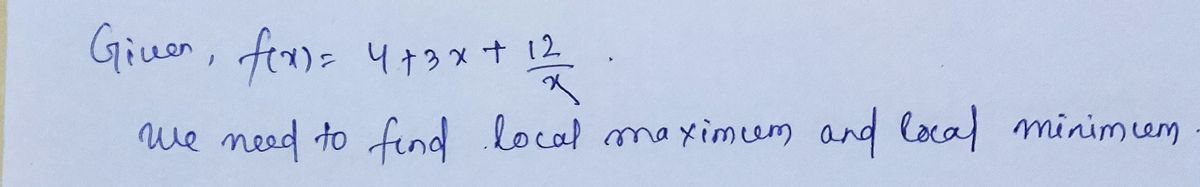 Given, f(x) = 4+3x+ 12/x .
We need to find local maximum and local minimum.